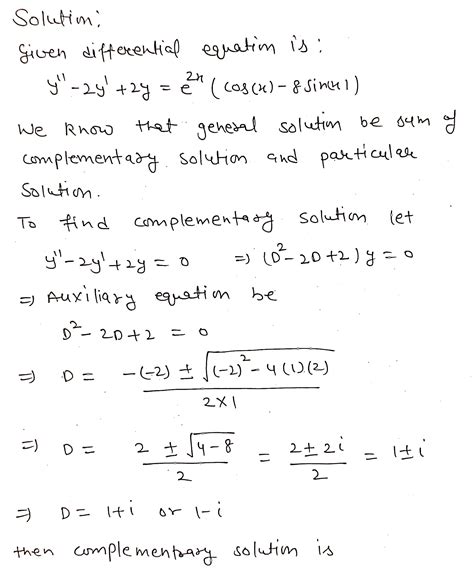 Solution:
Given differential equation is:
y'' - 2y' + 2y = e^{2x} ( cos(x) - 8 sin(x) )
We know that general solution be sum of
complementary solution and particular
solution.
To find complementary solution let
y'' - 2y' + 2y = 0 ⇒ (D² - 2D + 2) y = 0
⇒ Auxiliary equation be
D² - 2D + 2 = 0
⇒ D = \frac{-(-2) ± \sqrt{(-2)² - 4(1)(2)}}{2×1}
⇒ D = \frac{2 ± \sqrt{4-8}}{2} = \frac{2 ± 2i}{2} = 1 ± i
⇒ D = 1+i or 1-i
then complementary solution is